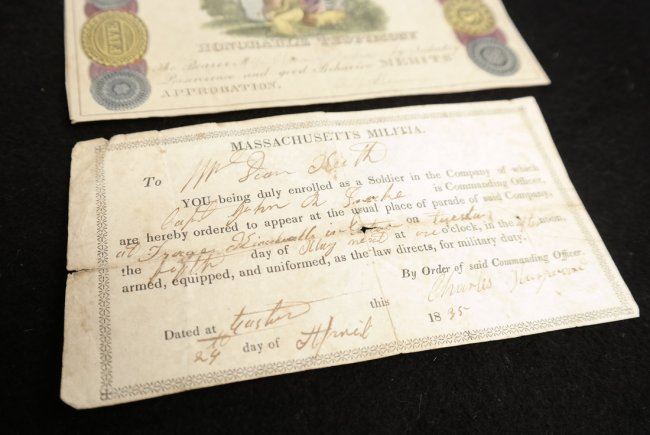 HONORABLE TESTIMONY
the Bearer by Industry
Perseverance and good Behavior MERITS
APPROBATION.
MASSACHUSETTS MILITIA.
To Mr
YOU being duly enrolled as a Soldier in the Company of which
Capt John is Commanding Officer,
are hereby ordered to appear at the usual place of parade of said Company,
at on Tuesday
the day of May next at one o'clock, in the noon,
armed, equipped, and uniformed, as the law directs, for military duty.
By Order of said Commanding Officer.
Charles
Dated at Easton this
24 day of April 1835